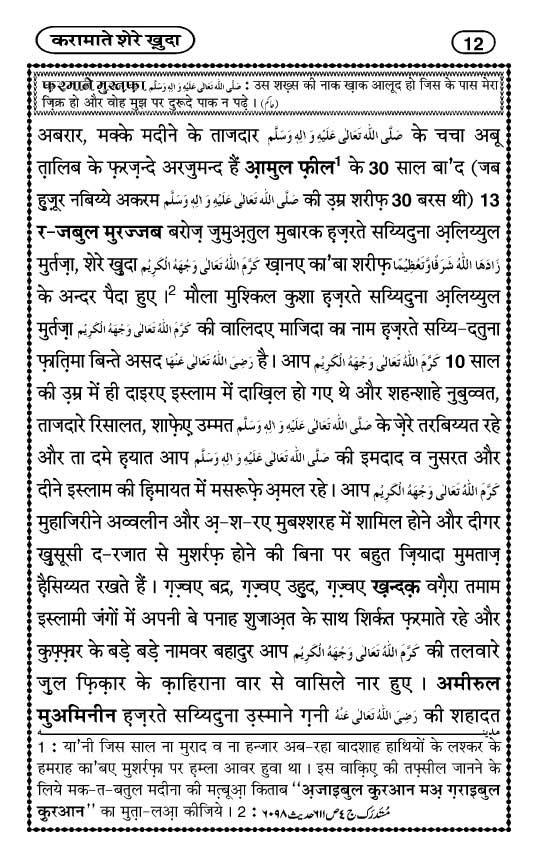 करामाते शेरे ख़ुदा
12
फ़रमाने मुस्तफ़ा صَلَّى اللّٰهُ تَعَالٰى عَلَيْهِ وَاٰلِهٖ وَسَلَّم : उस शख़्स की नाक ख़ाक आलूद हो जिस के पास मेरा
ज़िक्र हो और वोह मुझ पर दुरूदे पाक न पढ़े । (حاكم)
अबरार, मक्के मदीने के ताजदार صَلَّى اللّٰهُ تَعَالٰى عَلَيْهِ وَاٰلِهٖ وَسَلَّم के चचा अबू
त़ालिब के फ़रज़न्दे अरजुमन्द हैं आ़मुल फ़ील1 के 30 साल बा'द (जब
हु़ज़ूर नबिय्ये अकरम صَلَّى اللّٰهُ تَعَالٰى عَلَيْهِ وَاٰلِهٖ وَسَلَّم की उ़म्र शरीफ़ 30 बरस थी) 13
र-जबुल मुरज्जब बरोज़ जुमुअ़तुल मुबारक ह़ज़रते सय्यिदुना अ़लिय्युल
मुर्तज़ा, शेरे ख़ुदा كَرَّمَ اللّٰهُ تَعَالٰى وَجْهَهُ الْكَرِيْم ख़ानए का'बा शरीफ़ زَادَهَا اللّٰهُ شَرَفًا وَّتَعْظِيْمًا
के अन्दर पैदा हुए ।2 मौला मुश्किल कुशा ह़ज़रते सय्यिदुना अ़लिय्युल
मुर्तज़ा كَرَّمَ اللّٰهُ تَعَالٰى وَجْهَهُ الْكَرِيْم की वालिदए माजिदा का नाम ह़ज़रते सय्यि-दतुना
फ़ाति़मा बिन्ते असद رَضِىَ اللّٰهُ تَعَالٰى عَنْهَا है । आप كَرَّمَ اللّٰهُ تَعَالٰى وَجْهَهُ الْكَرِيْم 10 साल
की उ़म्र में ही दाइरए इस्लाम में दाख़िल हो गए थे और शहन्शाहे नुबुव्वत,
ताजदारे रिसालत, शाफ़ेए़ उम्मत صَلَّى اللّٰهُ تَعَالٰى عَلَيْهِ وَاٰلِهٖ وَسَلَّم के ज़ेरे तरबिय्यत रहे
और ता दमे ह़यात आप صَلَّى اللّٰهُ تَعَالٰى عَلَيْهِ وَاٰلِهٖ وَسَلَّم की इमदाद व नुसरत और
दीने इस्लाम की ह़िमायत में मसरूफ़े अ़मल रहे । आप كَرَّمَ اللّٰهُ تَعَالٰى وَجْهَهُ الْكَرِيْم
मुहाजिरीने अव्वलीन और अ़-श-रए मुबश्शरह में शामिल होने और दीगर
ख़ुसूसी द-रजात से मुशर्रफ़ होने की बिना पर बहुत ज़ियादा मुमताज़
ह़ैसिय्यत रखते हैं । ग़ज़्वए बद्र, ग़ज़्वए उहु़द, ग़ज़्वए ख़न्दक़ वग़ैरा तमाम
इस्लामी जंगों में अपनी बे पनाह शुजाअ़त के साथ शिर्कत फ़रमाते रहे और
कुफ़्फ़ार के बड़े बड़े नामवर बहादुर आप كَرَّمَ اللّٰهُ تَعَالٰى وَجْهَهُ الْكَرِيْم की तलवारे
ज़ुल फ़िक़ार के क़ाहिराना वार से वासिले नार हुए । अमीरुल
मुअमिनीन ह़ज़रते सय्यिदुना उ़स्माने ग़नी رَضِىَ اللّٰهُ تَعَالٰى عَنْهُ की शहादत
مدينه
1 : या'नी जिस साल ना मुराद व ना हन्जार अब-रहा बादशाह हाथियों के लश्कर के
हमराह का'बए मुशर्रफ़ा पर हम्ला आवर हुवा था । इस वाक़िए़ की तफ़्सील जानने के
लिये मक-त-बतुल मदीना की मत़्बूआ़ किताब "अ़जाइबुल क़ुरआन मअ़ ग़राइबुल
क़ुरआन" का मुता़-लआ़ कीजिये । 2 : مُستَدرَك ج٤ ص٦١١ حديث ٦٠٩٨